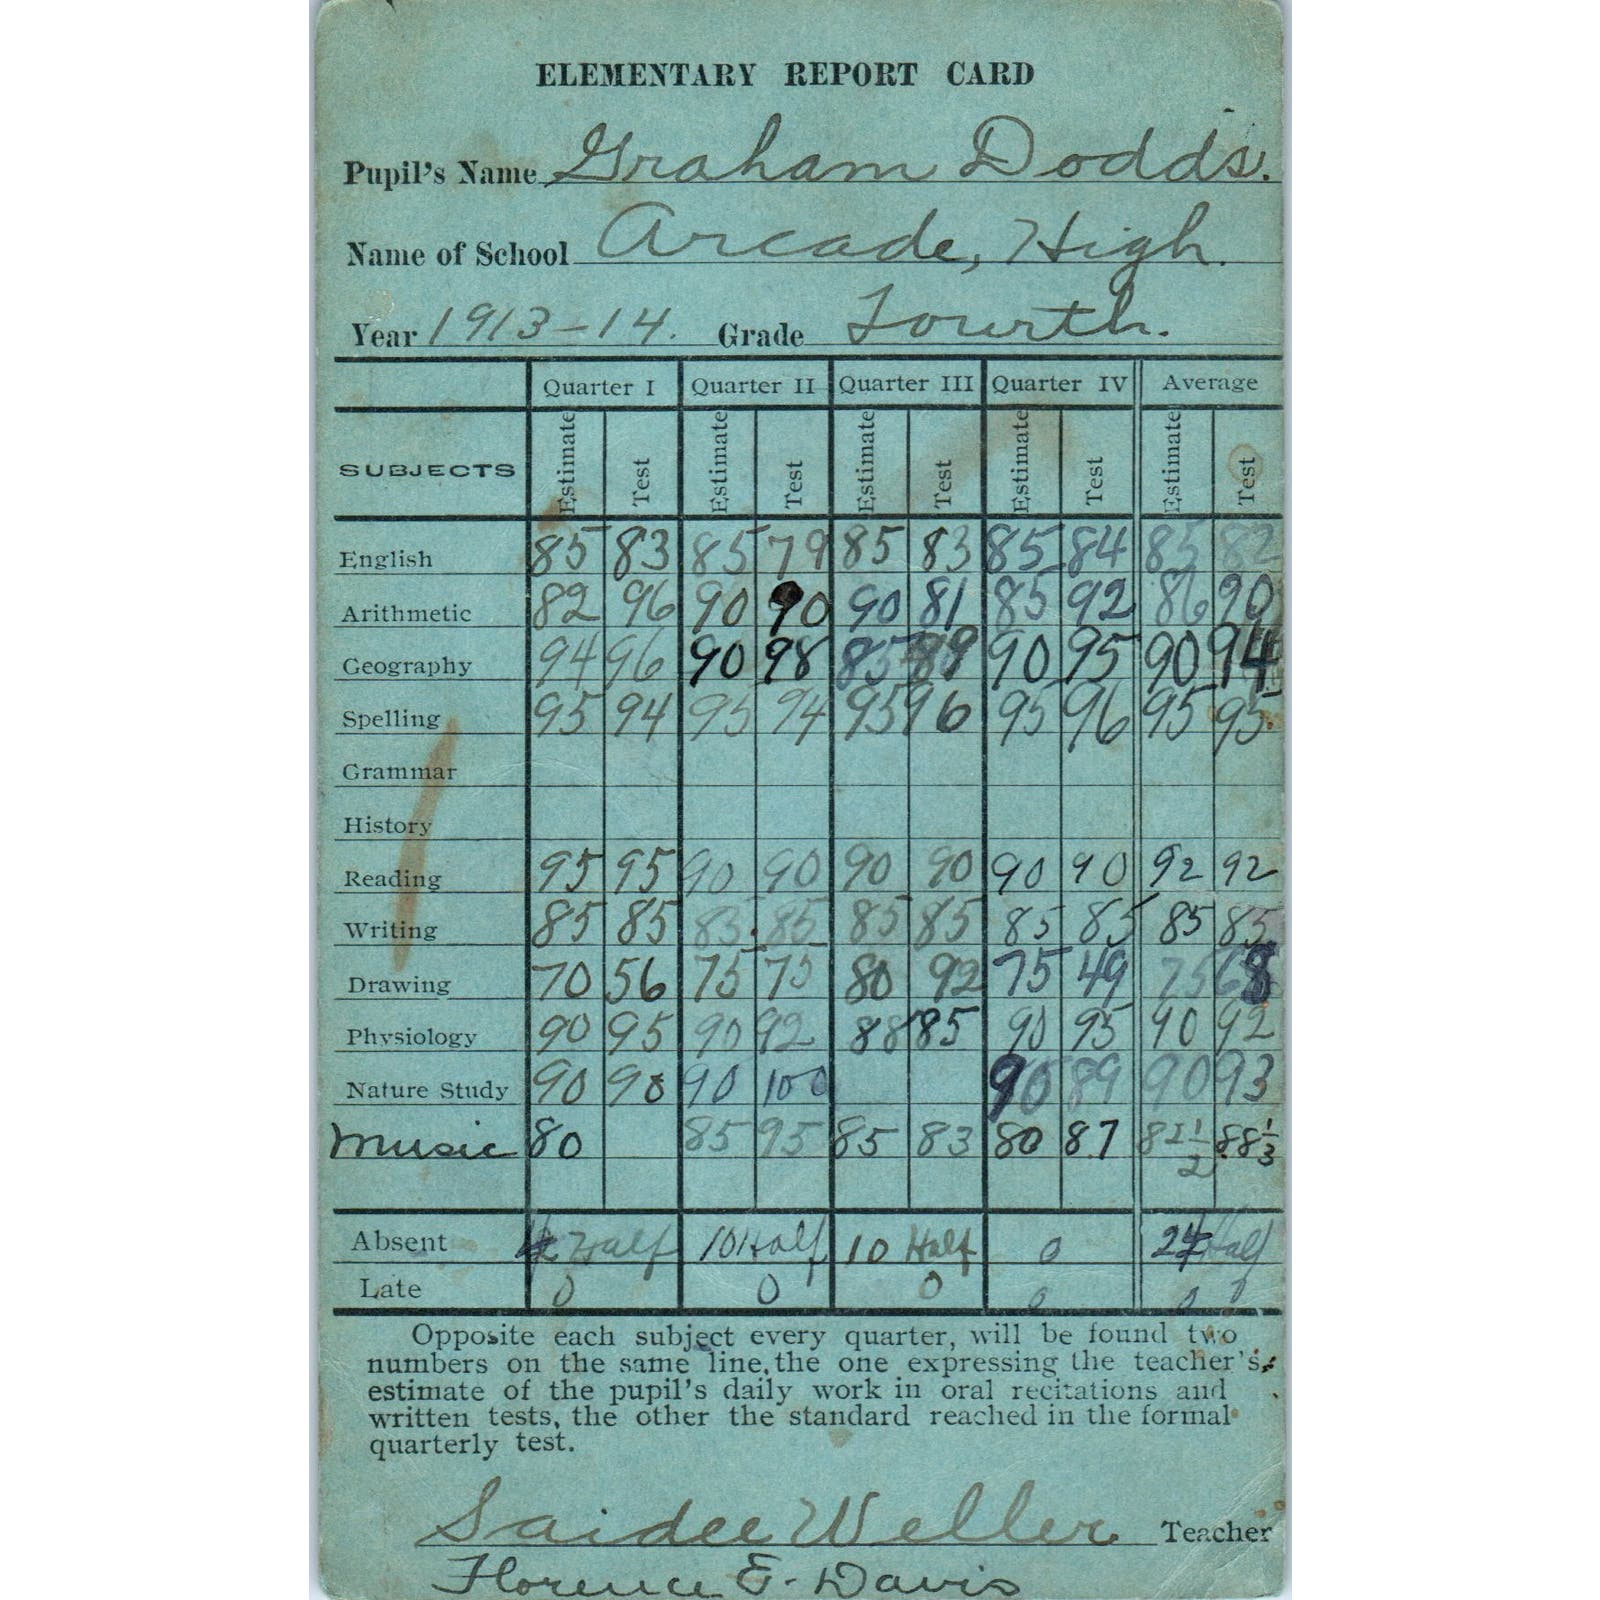 ELEMENTARY REPORT CARD
Pupil's Name Graham Dodds.
Name of School Arcade, High.
Year 1913-14. Grade Fourth.
Quarter I Quarter II Quarter III Quarter IV Average
SUBJECTS Estimate Test Estimate Test Estimate Test Estimate Test Estimate Test
English 85 83 85 79 85 83 85 84 85 82
Arithmetic 82 96 90 90 90 81 85 92 86 90
Geography 94 96 90 98 85 89 90 95 90 94
Spelling 95 94 95 94 95 96 95 96 95 95
Grammar
History
Reading 95 95 90 90 90 90 90 90 92 92
Writing 85 85 85 85 85 85 85 85 85 85
Drawing 70 56 75 75 80 92 75 49 75 68
Physiology 90 95 90 92 88 85 90 95 90 92
Nature Study 90 90 90 100 90 89 90 93
Music 80 85 95 85 83 80 87 82 1/2 88 1/3
Absent 4 Half 10 Half 10 Half 0 24 Half
Late 0 0 0 0 0 0
Opposite each subject every quarter, will be found two
numbers on the same line, the one expressing the teacher's
estimate of the pupil's daily work in oral recitations and
written tests, the other the standard reached in the formal
quarterly test.
Saidee Weller Teacher
Florence E. Davis